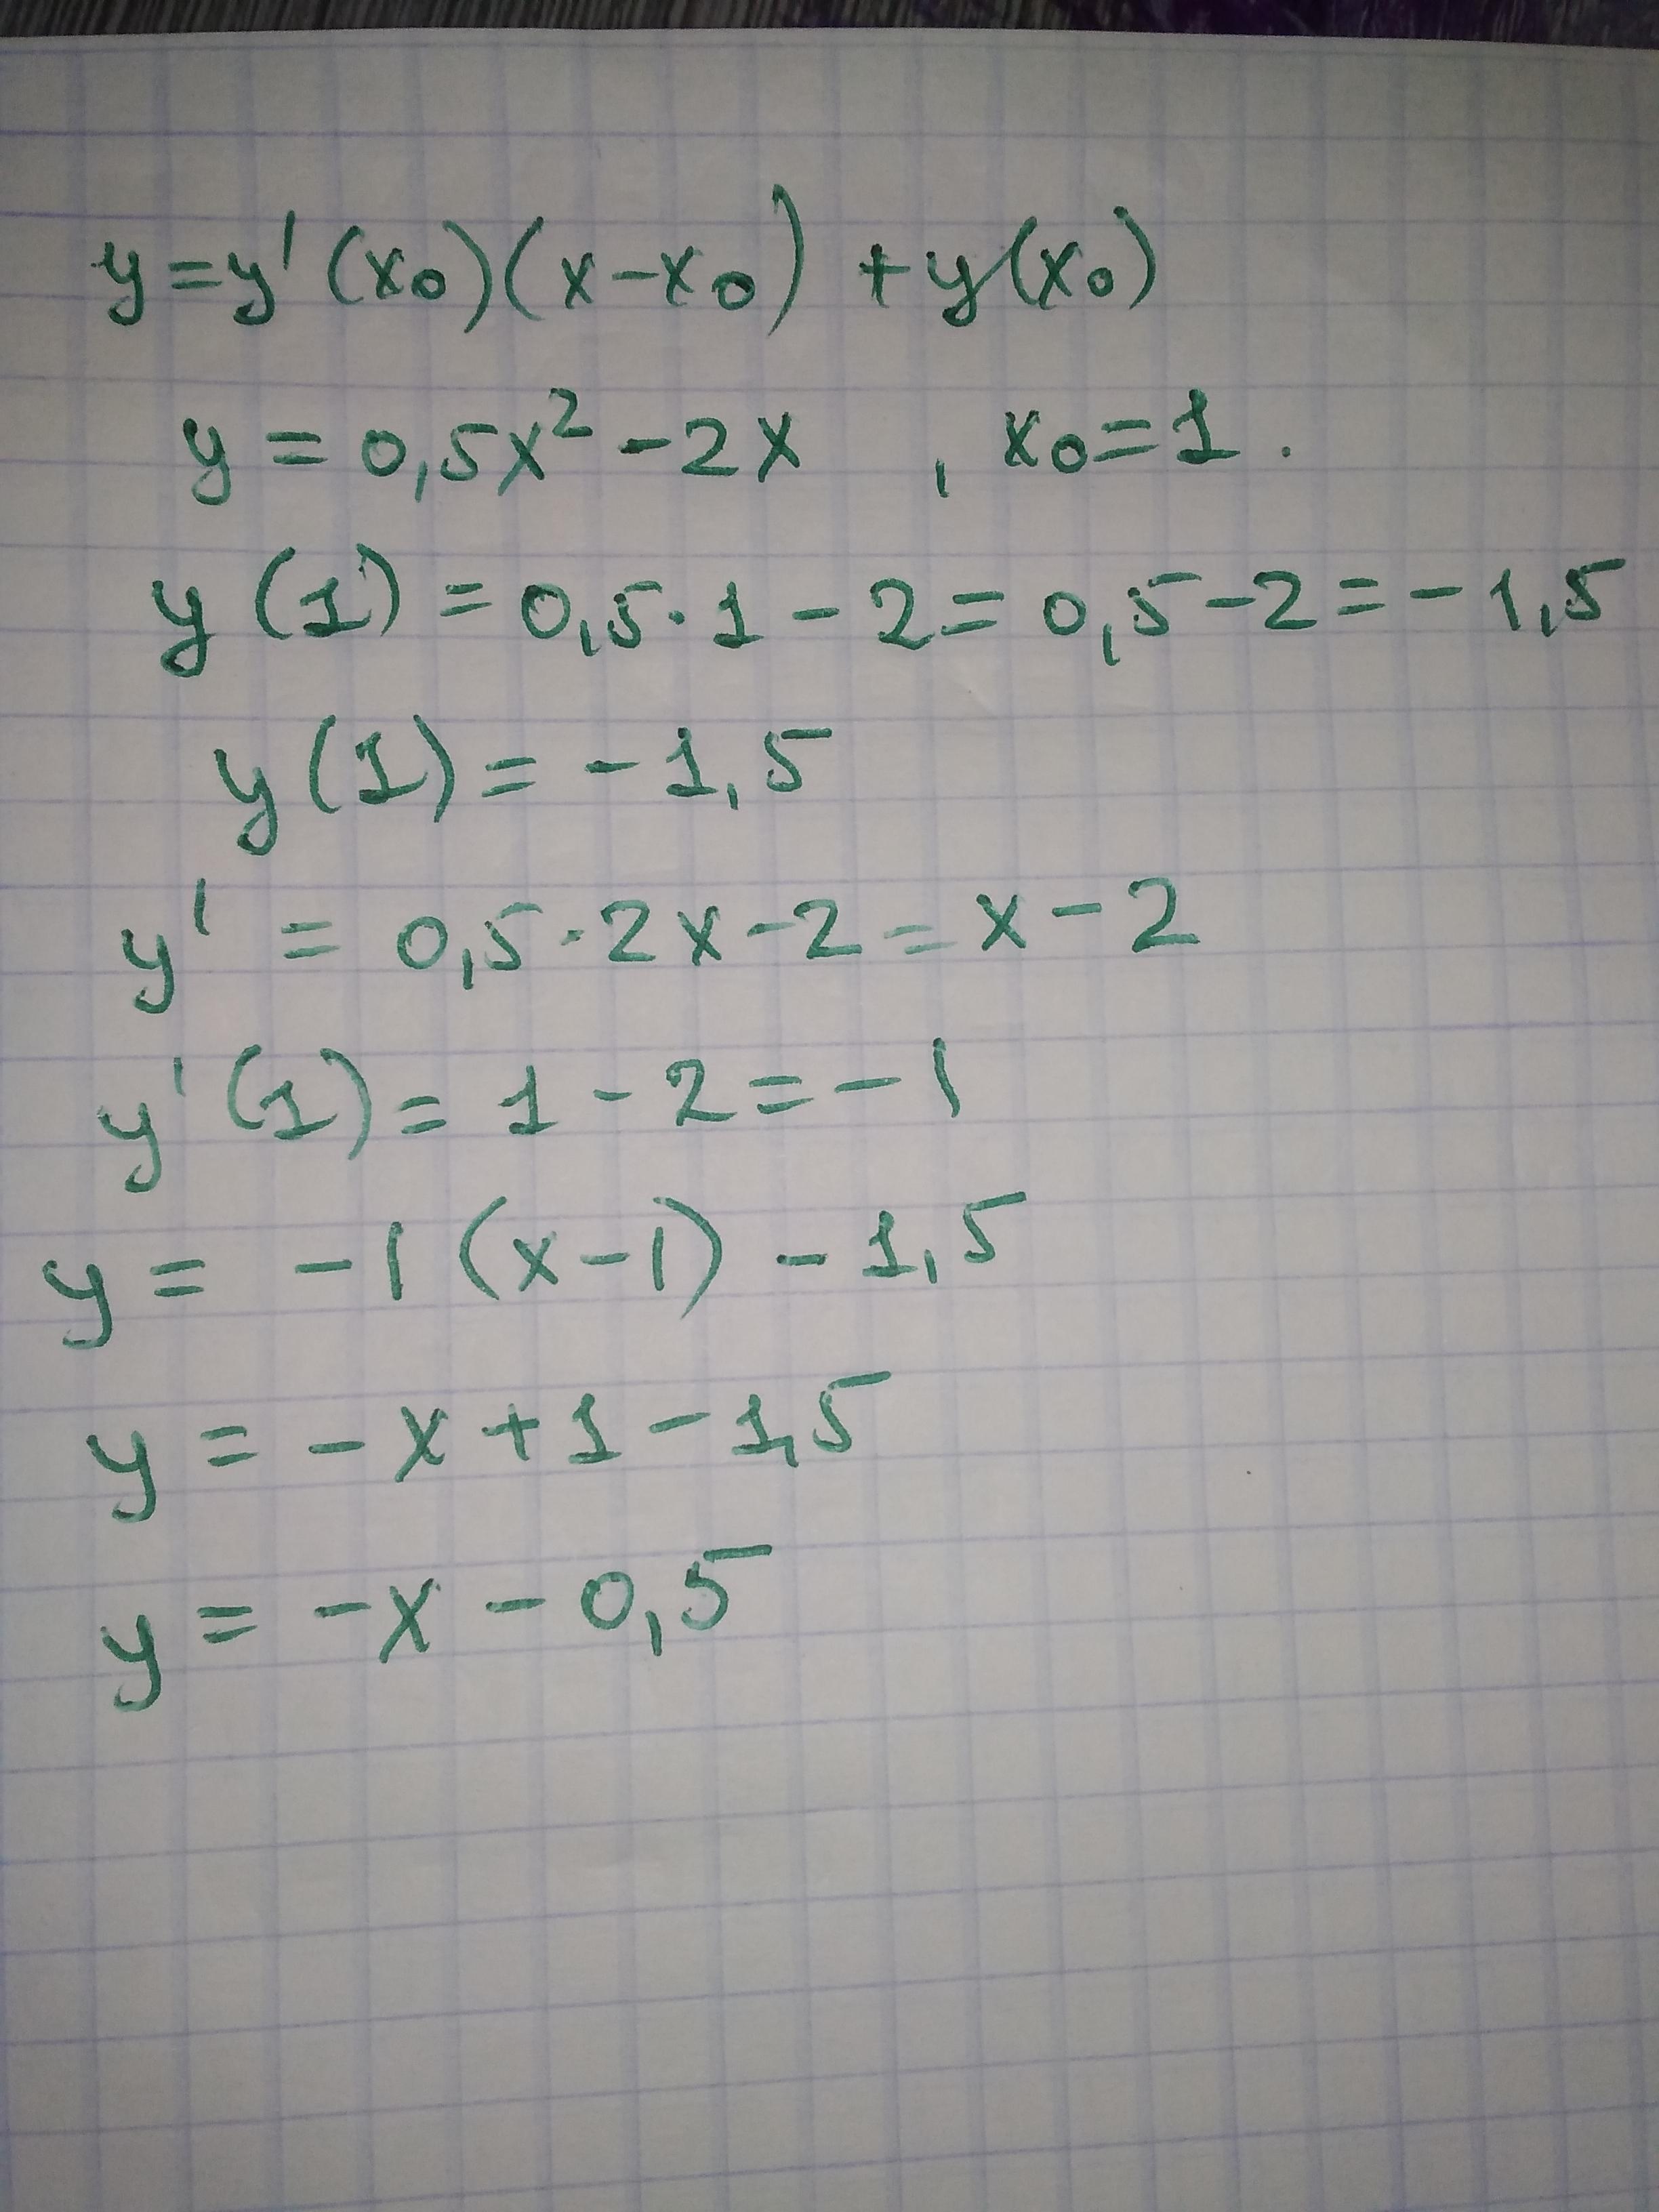 y=y'(x₀)(x-x₀)+y(x₀)
y = 0,5x² - 2x , x₀=1.
y(1) = 0,5·1 - 2 = 0,5-2 = -1,5
y(1) = -1,5
y' = 0,5·2x-2 = x-2
y'(1) = 1 - 2 = -1
y = -1(x-1) - 1,5
y = -x+1-1,5
y = -x - 0,5